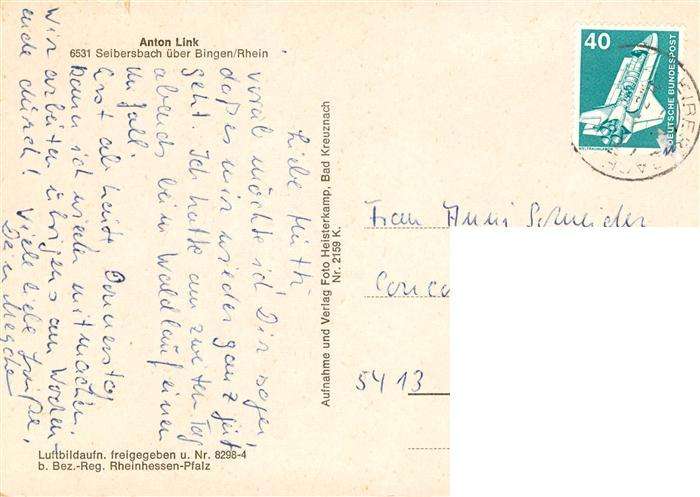 Anton Link
6531 Seibersbach über Bingen/Rhein
Liebe Mutti,
vorab möchte ich Dir sagen,
daß es mir wieder ganz gut
geht. Ich hatte am zweiten Tag
abends beim Waldlauf einen
Unfall.
Erst ab heute Donnerstag
kann ich wieder mitmachen.
Wir arbeiten übrigens am Wochen-
ende durch! Viele liebe Grüße,
Dein
Luftbildaufn. freigegeben u. Nr. 8298-4
b. Bez.-Reg. Rheinhessen-Pfalz
Aufnahme und Verlag Foto Heisterkamp, Bad Kreuznach
Nr. 2159 K.
40
DEUTSCHE BUNDESPOST
Frau Anni Schneider
5413